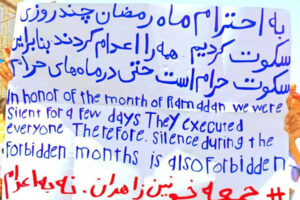 به احترام ماه رمضان چند روزی
سکوت کردیم. همه را اعدام کردند بنابراین
سکوت حرام است حتی در ماه‌های حرام
In honor of the month of Ramadan we were
silent for a few days They executed
everyone Therefore, silence during the
forbidden months is also forbidden
#جمعه خونین زاهدان. نه به اعدام